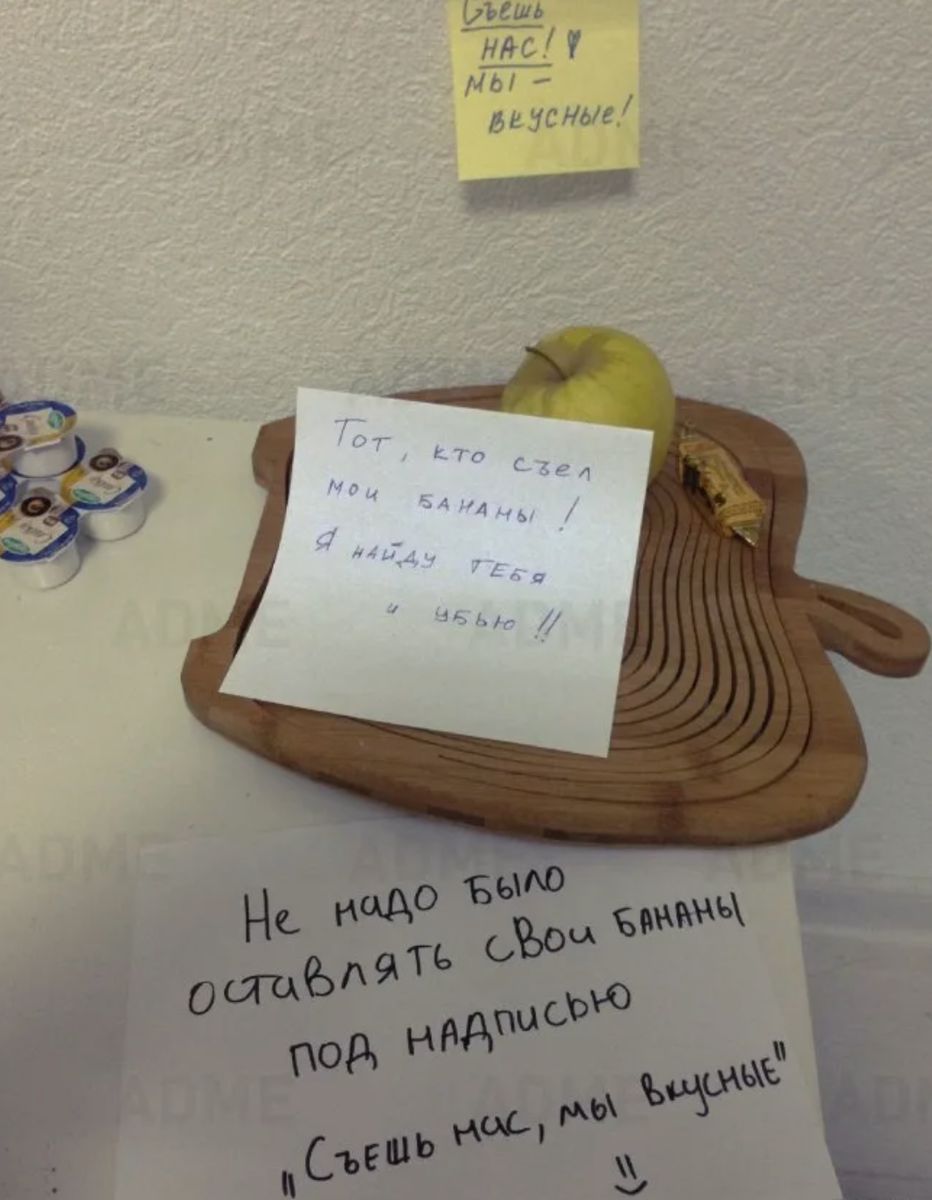 Съешь
НАС!
МЫ –
ВКУСНЫЕ!
Тот, кто съел
мои БАНАНЫ!
Я НАЙДУ ТЕБЯ
и УБЬЮ!!
Не надо было
оставлять свои БАНАНЫ
под надписью
„Съешь нас, мы вкусные"
ADME